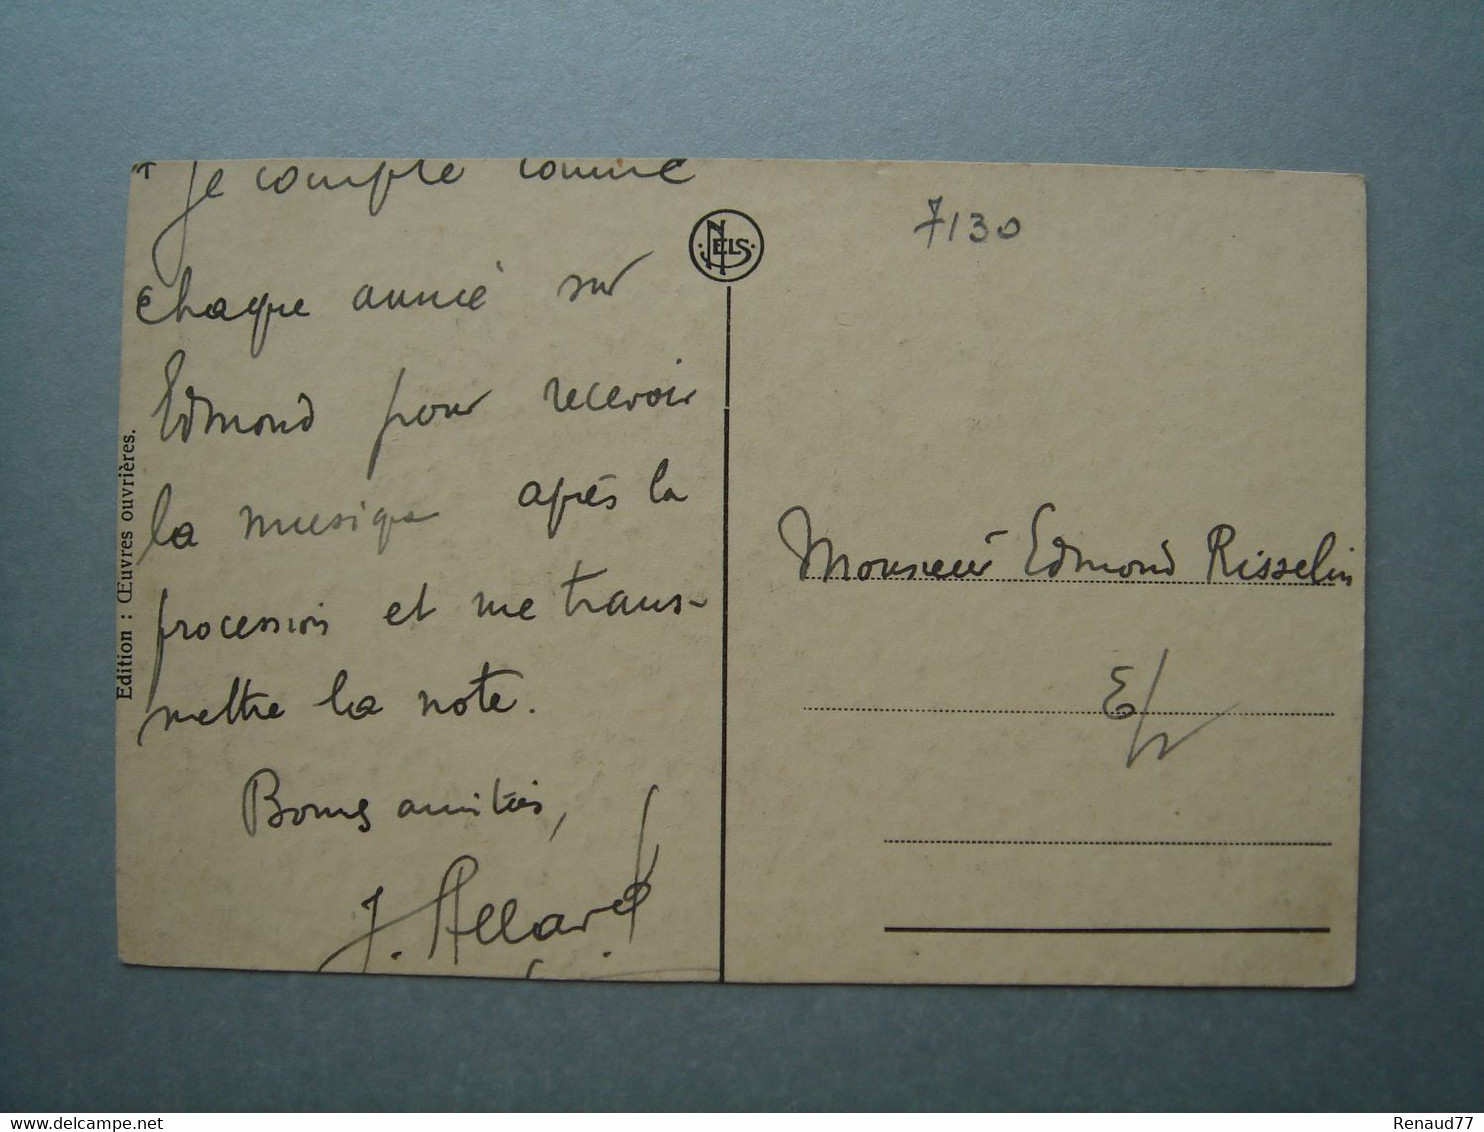 Je compte comme
chaque année sur
Edmond pour recevoir
la musique après la
procession et me trans-
mettre la note.
Bonnes amitiés,
J. Allard
Edition : Œuvres ouvrières.
NELS
7130
Monsieur Edmond Risselin
E/V
Renaud77